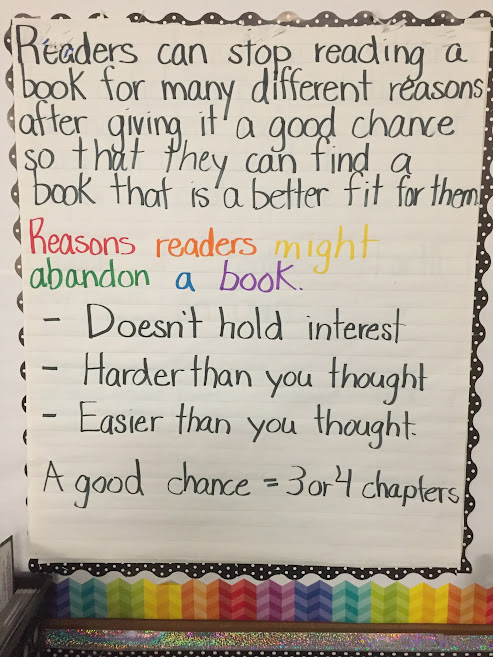 Readers can stop reading a
book for many different reasons
after giving it a good chance
so that they can find a
book that is a better fit for them.
Reasons readers might
abandon a book.
- Doesn't hold interest
- Harder than you thought
- Easier than you thought.
A good chance = 3 or 4 chapters